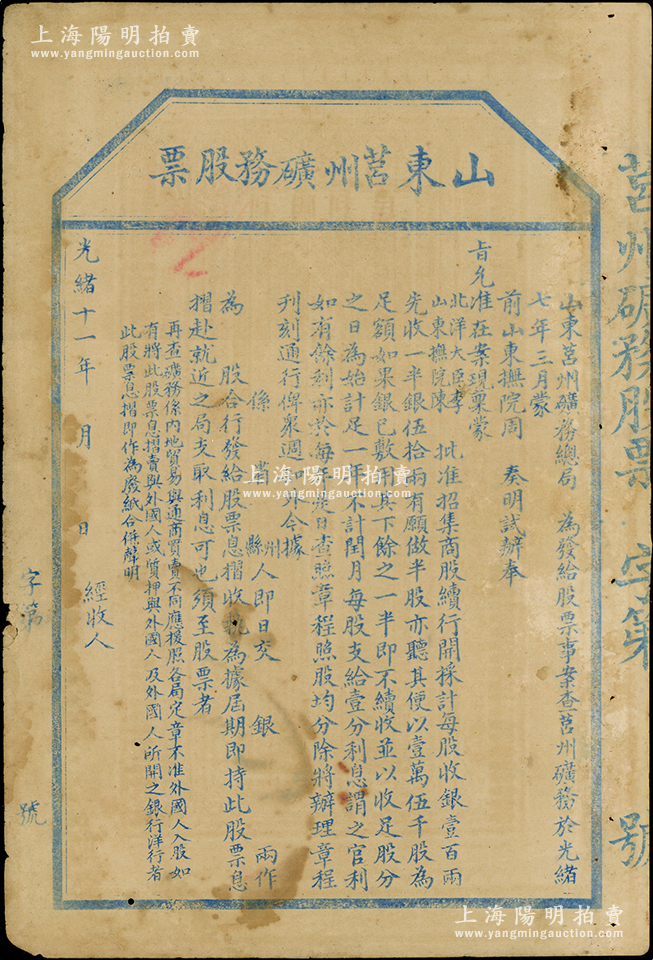 上海陽明拍賣
www.yangmingauction.com
上海陽明拍賣
www.yangmingauction.com
山東莒州礦務股票
莒州礦務股票 字第 號
山東莒州礦務總局 為發給股票事案查莒州礦務於光緒
七年三月蒙
前山東撫院周 奏明試辦奉
旨允准在案現稟蒙
北洋大臣李
山東撫院陳 批准招集商股續行開採計每股收銀壹百兩
先收一半銀伍拾兩有願做半股亦聽其便以壹萬伍千股為
足額如果銀已敷用其下餘之一半即不續收並以收足股分
之日為始計足一年不計閏月每股支給壹分利息謂之官利
如有餘利亦於每年是日查照章程照股均分除將辦理章程
刊刻通行俾衆週知外合據
係 省 州縣 人即日交 銀 兩作
為 股合行發給股票息摺收執為據屆期即持此股票息
摺赴就近之局支取利息可也須至股票者
再查礦務係內地貿易與通商買賣不同應援照各局定章不准外國人入股如
有將此股票息摺賣與外國人或質押與外國人及外國人所開之銀行洋行者
此股票息摺即作為廢紙合併聲明
經收人
光緒十一年 月 日
字第 號
上海陽明拍賣
www.yangmingauction.com
上海陽明拍賣
www.yangmingauction.com